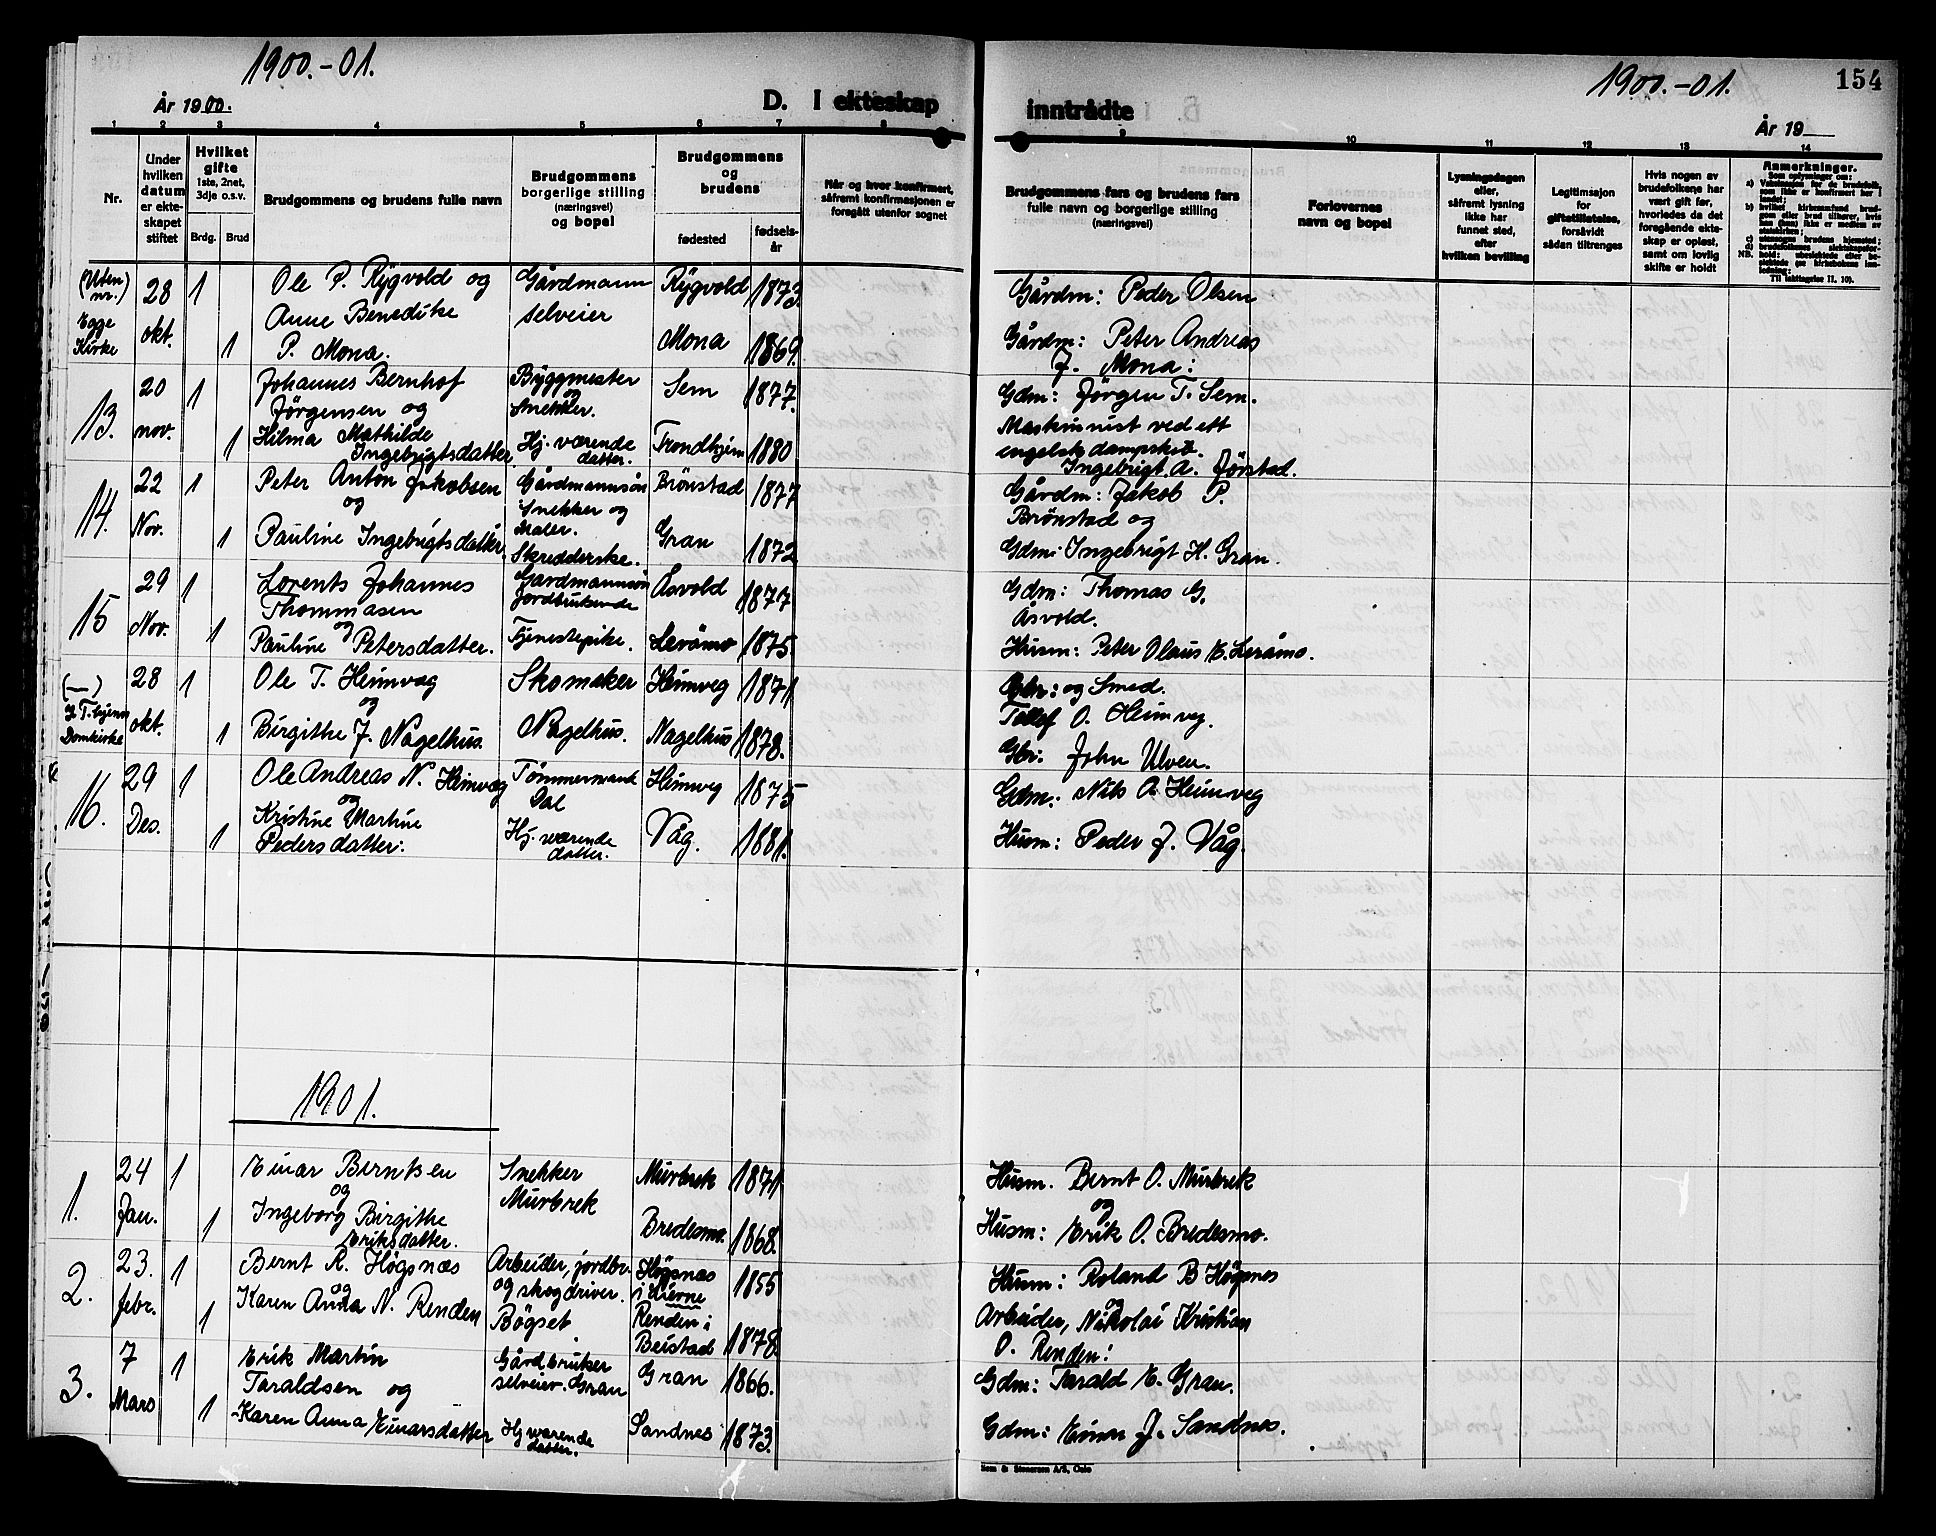 1900.-01.
År 1900.
D. I ekteskap
inntrådte
1900.-01.
154
År 19
1 2 3 4 5 6 7 8 9 10 11 12 13 14
Nr.
Under hvilken datum er ekteskapet stiftet
Hvilket gifte 1ste, 2net, 3dje o.s.v.
Brdg. Brud
Brudgommens og brudens fulle navn
Brudgommens borgerlige stilling (næringsvei) og bopel
Brudgommens og brudens
fødested
fødselsår
Når og hvor konfirmert, såfremt konfirmasjonen er foregått utenfor sognet
Brudgommens fars og brudens fars fulle navn og borgerlige stilling (næringsvei)
Forlovernes navn og bopel
Lysningsdagen eller, såfremt lysning ikke har funnet sted, efter hvilken bevilling
Legitimasjon for giftetillatelse, forsåvidt sådan tiltrenges
Hvis nogen av brudefolkene har vært gift før, hvorledes da det foregående ekteskap er opløst, samt om lovlig skifte er holdt
Anmerkninger.
Som oplysninger om:
Til iakttagelse II, 10).
(Uten nr.) Egge Kirke
28 okt.
1
Ole P. Rygvold og
Gårdmann selveier
Rygvold
1873.
Gårdm: Peder Olsen
1
Anne Benedikte P. Mona.
Mona
1869.
Gårdm: Peter Andreas J. Mona:
13.
20 nov.
1
Johannes Bernhof Jörgensen og
Byggmester og Snekker.
Sem
1877.
Gdm: Jörgen T. Sem.
1
Hilma Mathilde Ingebrigtsdatter
Hj. værende datter.
Trondhjem
1880
Maskinnist ved ett engelsk dampskib. Ingebrigt A. Jörstad.
14.
22 Nov.
1
Peter Anton Jakobsen og
Gårdmannsön Snekker og Maler.
Brönstad
1877
Gårdm: Jakob P. Brönstad og
1
Pauline Ingebrigtsdatter,
Skredderske.
Gran
1872
Gdm: Ingebrigt H. Gran.
15
29 Nov.
1
Lorents Johannes Thommasen og
Gårdmannsön Jordbrukende
Åsvold
1877
Gdm: Thomas G. Åsvold.
1
Pauline Petersdatter.
Tjenestepike.
Leråmo
1875.
Husm: Peter Olaus E. Leråmo.
(—) Domkirke
28 okt.
1
Ole T. Heimveg og
Skomaker
Heimveg
1871
Gbr: og Smed. Tollef O. Heimveg.
1
Birgithe J. Nagelhus.
Nagelhus.
Nagelhus
1878.
Gbr: John Ulven.
16.
29 Des.
1
Ole Andreas N. Heimveg og
Tømmermann Dal
Heimveg
1875
Gdm: Nils A Heimveg
1
Kristine Martine Pedersdatter:
Hj. værende datter.
Våg.
1881.
Husm: Peder J. Våg.
1901.
1.
24 Jan.
1
Einar Berntsen og
Snekker Murbrek
Murbrek
1871
Husm. Bernt O. Murbrek og
1
Ingeborg Birgithe Eriksdatter.
Bredesmo.
1868.
Husm: Erik O. Bredesmo.
2.
23. febr.
1
Bernt R. Høgsnæs og
Arbeider, jordbr. og skogdriver. Bøgset
Høgsnæs i Lierne
1855
Husm: Roland B Høgsnes og
1
Karen Anna N. Renden
Renden i Beistad
1878.
Arbeider, Nikolai Kristian O. Renden:
3.
7 Mars
1
Erik Martin Taraldsen og
Gårdbruker selveier. Gran
Gran
1866.
Gdm: Tarald E. Gran.
1
Karen Anna Einarsdatter
Hj værende datter.
Sandnes
1873.
Gdm: Einar J. Sandnes.
Sem & Stenersen A/S, Oslo